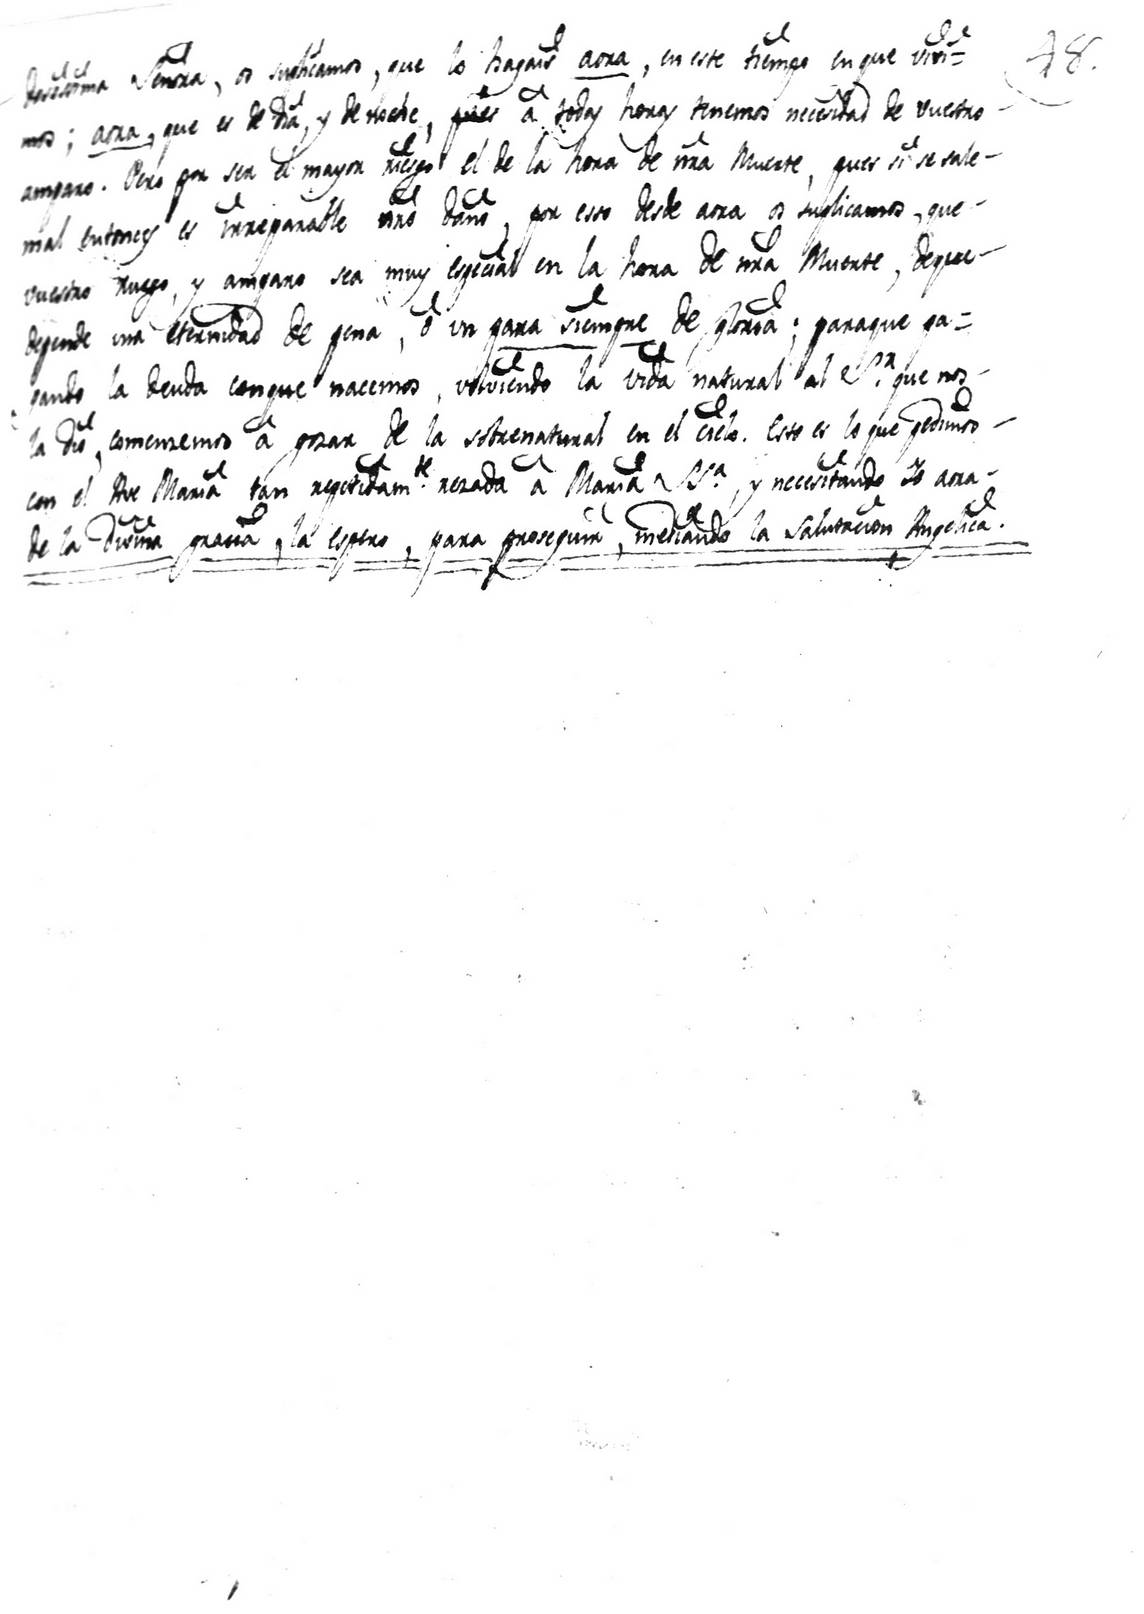 48.
dosissima Señora, os suplicamos, que lo hagais aora, en este tiempo en que vivi=
mos; aora, que es de dia, y de noche, pues â todas horas tenemos necesidad de vuestro
amparo. Pero por ser el mayor riesgo el de la hora de nrã Muerte, pues si se sale
mal entonces es irreparable nrõ daño, por esso desde aora os suplicamos, que
vuestro ruego, y amparo sea muy especial en la hora de nrã Muerte, de que
depende una eternidad de pena, ô un para siempre de gloria; paraque pa=
gando la deuda conque nacemos, volviendo la vida natural al Sr. que nos
la dio, comenzemos â gozar de la sobrenatural en el cielo. Esto es lo que pedimos
con el Ave Maria tan repetidamte. rezada â Maria SSa, y necesitando Yo aora
de la Divina gracia, la espero, para proseguir, mediando la Salutacion Angelica.